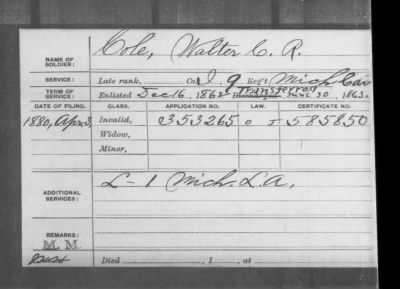 NAME OF SOLDIER: Cole, Walter C. R.
SERVICE: Late rank, Co. I, 9 Reg't Mich Cav
TERM OF SERVICE: Enlisted Dec 16, 1862 Transferred June 30, 1863.
DATE OF FILING. CLASS. APPLICATION NO. LAW. CERTIFICATE NO.
1880, Apr. 3, Invalid, 353265 585850
Widow,
Minor,
ADDITIONAL SERVICES: L-1 Mich. L.A.
REMARKS:
M. M.
Died , 1 , at